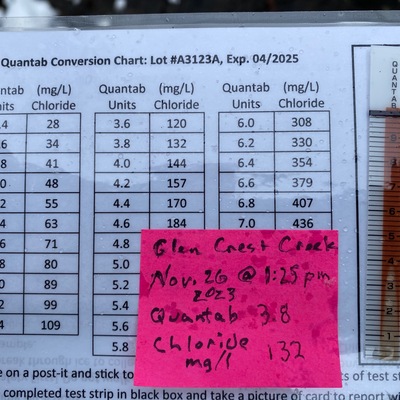 Quantab Conversion Chart: Lot #A3123A, Exp. 04/2025
ntab (mg/L) Quantab (mg/L) Quantab (mg/L)
nits Chloride Units Chloride Units Chloride
.4 28 3.6 120 6.0 308
.6 34 3.8 132 6.2 330
.8 41 4.0 144 6.4 354
.0 48 4.2 157 6.6 379
.2 55 4.4 170 6.8 407
.4 63 4.6 184 7.0 436
.6 71 4.8
.8 80 5.0
.0 89 5.2
.2 99 5.4
.4 109 5.6
5.8
Glen Crest Creek
Nov. 26 @ 1:25 pm
2023
Quantab 3.8
Chloride 132
mg/l
QUANTAB
e on a post-it and stick to
ts of test st
completed test strip in black box and take a picture of card to report wi